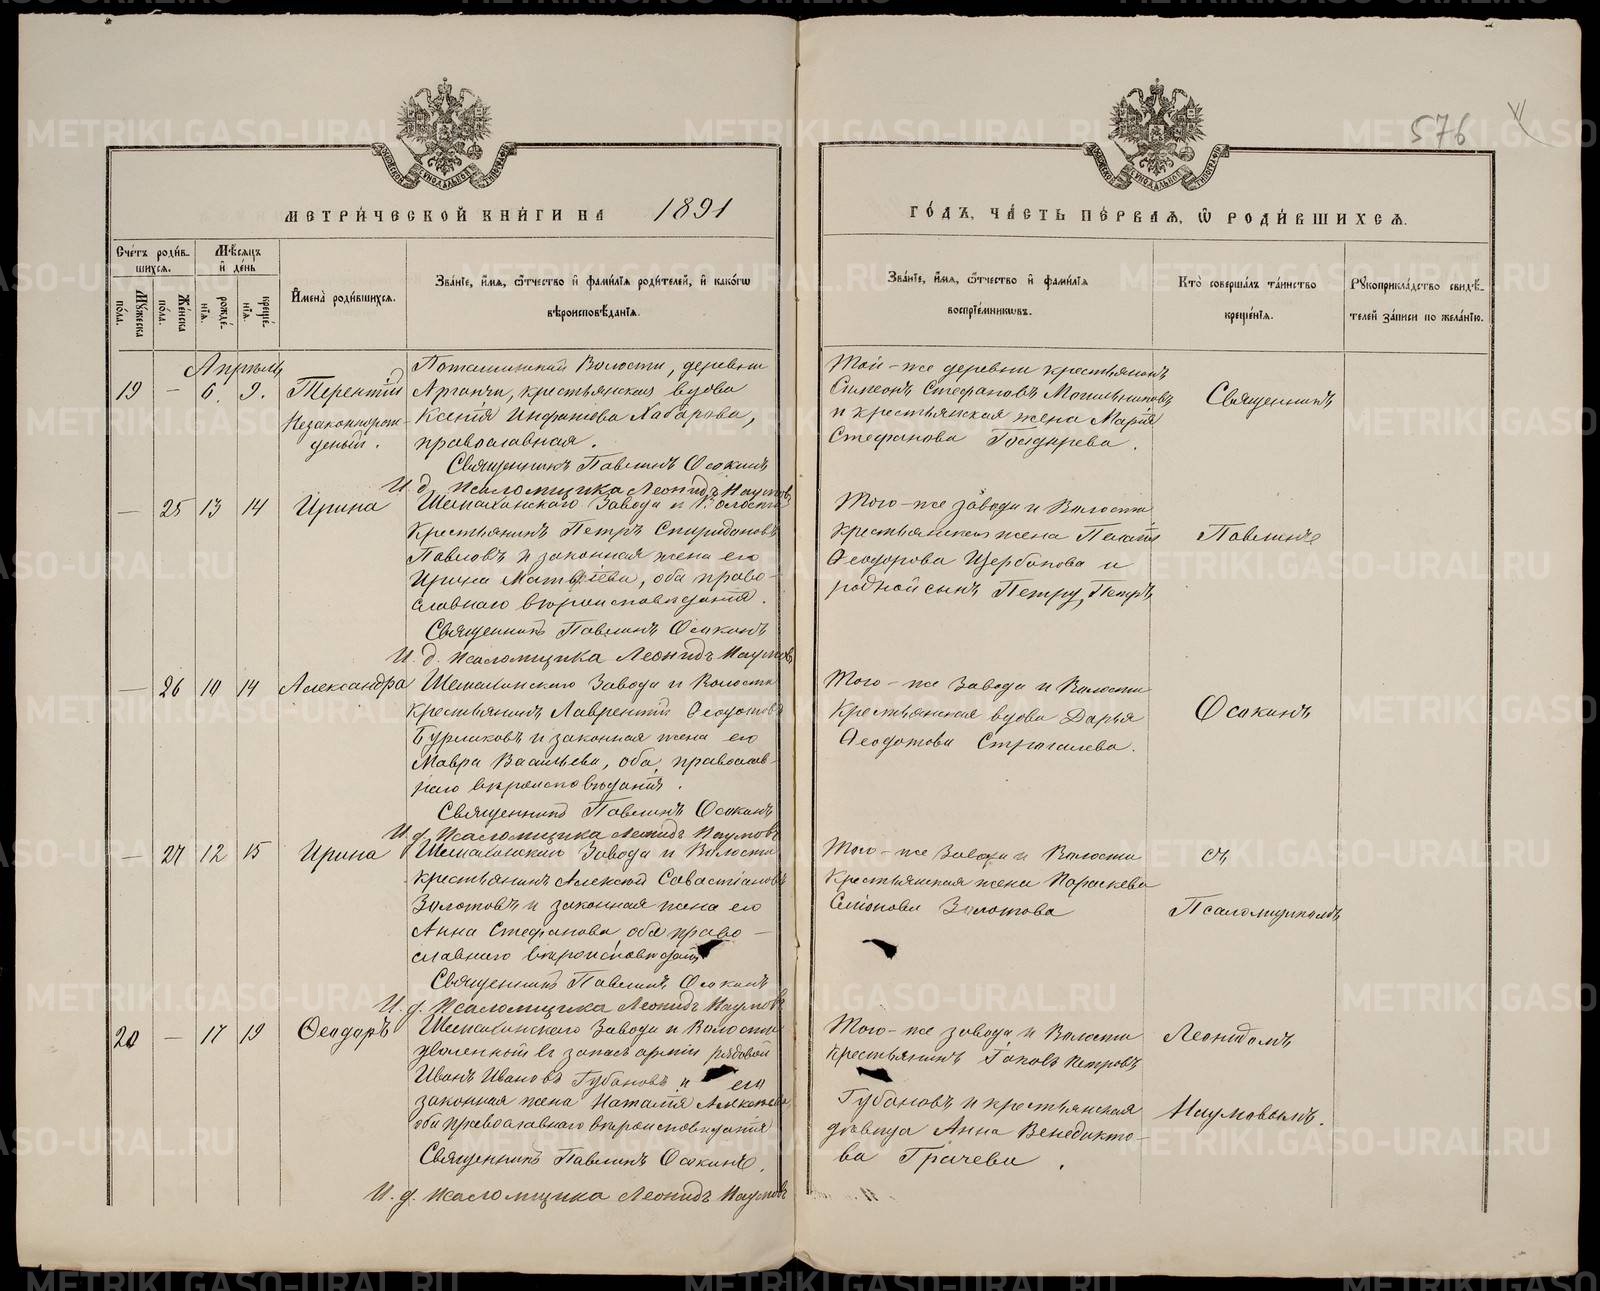 576
МЕТРИ́ЧЕСКОЙ КНИ́ГИ НА 1891
ГО́ДЪ, ЧА́СТЬ ПЕ́РВАЯ, Ѡ РОДИ́ВШИХСЯ.
Сче́тъ роди́в-
шихся.
Мѣ́сяцъ
и де́нь
Мꙋжеска по́ла.
Же́нска по́ла.
рожде́-
нїя.
креще́-
нїя.
И҆мена̀ роди́вшихся.
Зва́нїе, и҆́мя, ѻ҆́тчество и҆ фами́лїя роди́телей, и҆ како́гѡ
вѣроисповѣ́данїя.
Зва́нїе, и҆́мя, ѻ҆́тчество и҆ фами́лїя
воспрїе́мникѡвъ.
Кто̀ соверша́лъ та́инство
креще́нїя.
Рꙋкоприкла́дство свидѣ́-
телей за́писи по жела́нїю.
Апрѣль
19 — 6 9. Терентій
Незаконнорож-
денный.
Поташинской Волости, деревни
Артанчи, крестьянская вдова
Ксенія
православная.
Священникъ Павлинъ Осокинъ
И. д. Псаломщика Леонидъ Наумовъ
Той-же деревни крестьянинъ
Симеонъ Стефановъ Могильниковъ
и крестьянская жена Марія
Стефанова
Священникъ
— 25 13 14 Ирина
Шемахинскаго Завода и Волости
крестьянинъ Петръ Спиридоновъ
Павловъ и законная жена его
Ирина Матвѣева, оба право-
славнаго вѣроисповѣданія.
Священникъ Павлинъ Осокинъ
И. д. Псаломщика Леонидъ Наумовъ
Того-же завода и Волости
крестьянская жена
Ѳеодорова Щербакова и
родной сынъ Петру, Петръ
Павлинъ
— 26 10 14 Александра
Шемахинскаго Завода и Волости
крестьянинъ Лаврентій Ѳеодотовъ
Бурлаковъ и законная жена его
Мавра Васильева, оба православ-
наго вѣроисповѣданія.
Священникъ Павлинъ Осокинъ
И. д. Псаломщика Леонидъ Наумовъ
Того-же Завода и Волости
Крестьянская вдова Дарья
Ѳеодотова Строгалева.
Осокинъ
— 27 12 15 Ирина
Шемахинскаго Завода и Волости
крестьянинъ Алексей Савастіановъ
Золотовъ и законная жена его
Анна Стефанова, оба право-
славнаго вѣроисповѣданія
Священникъ Павлинъ Осокинъ
И. д. Псаломщика Леонидъ Наумовъ
Того-же Завода и Волости
Крестьянская жена Параскева
Семіонова Золотова
съ
Псаломщикомъ
20 — 17 19 Ѳеодоръ
Шемахинскаго Завода и Волости
уволенный въ запасъ арміи рядовой
Иванъ Ивановъ Губановъ и его
законная жена Наталія Алексѣева,
оба православнаго вѣроисповѣданія
Священникъ Павлинъ Осокинъ.
И. д. Псаломщика Леонидъ Наумовъ
Того-же завода и Волости
крестьянинъ Іаковъ Петровъ
Губановъ и крестьянская
дѣвица Анна Венедикто-
ва Грачева.
Леонидомъ
Наумовымъ.
METRIKI.GASO-URAL.RU